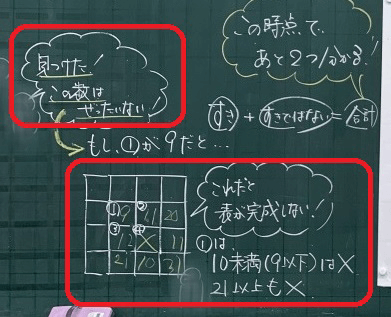 見つけた!
この数は
ぜったいない!
この時点で、
あと2つ分かる!
すき + すきではない = 合計
もし、①が9だと…
① 9 ② 11 20
③ 12 ④ × 11
21 10 31
これだと
表が完成しない!
①は
10未満(9以下)は×
21以上も×